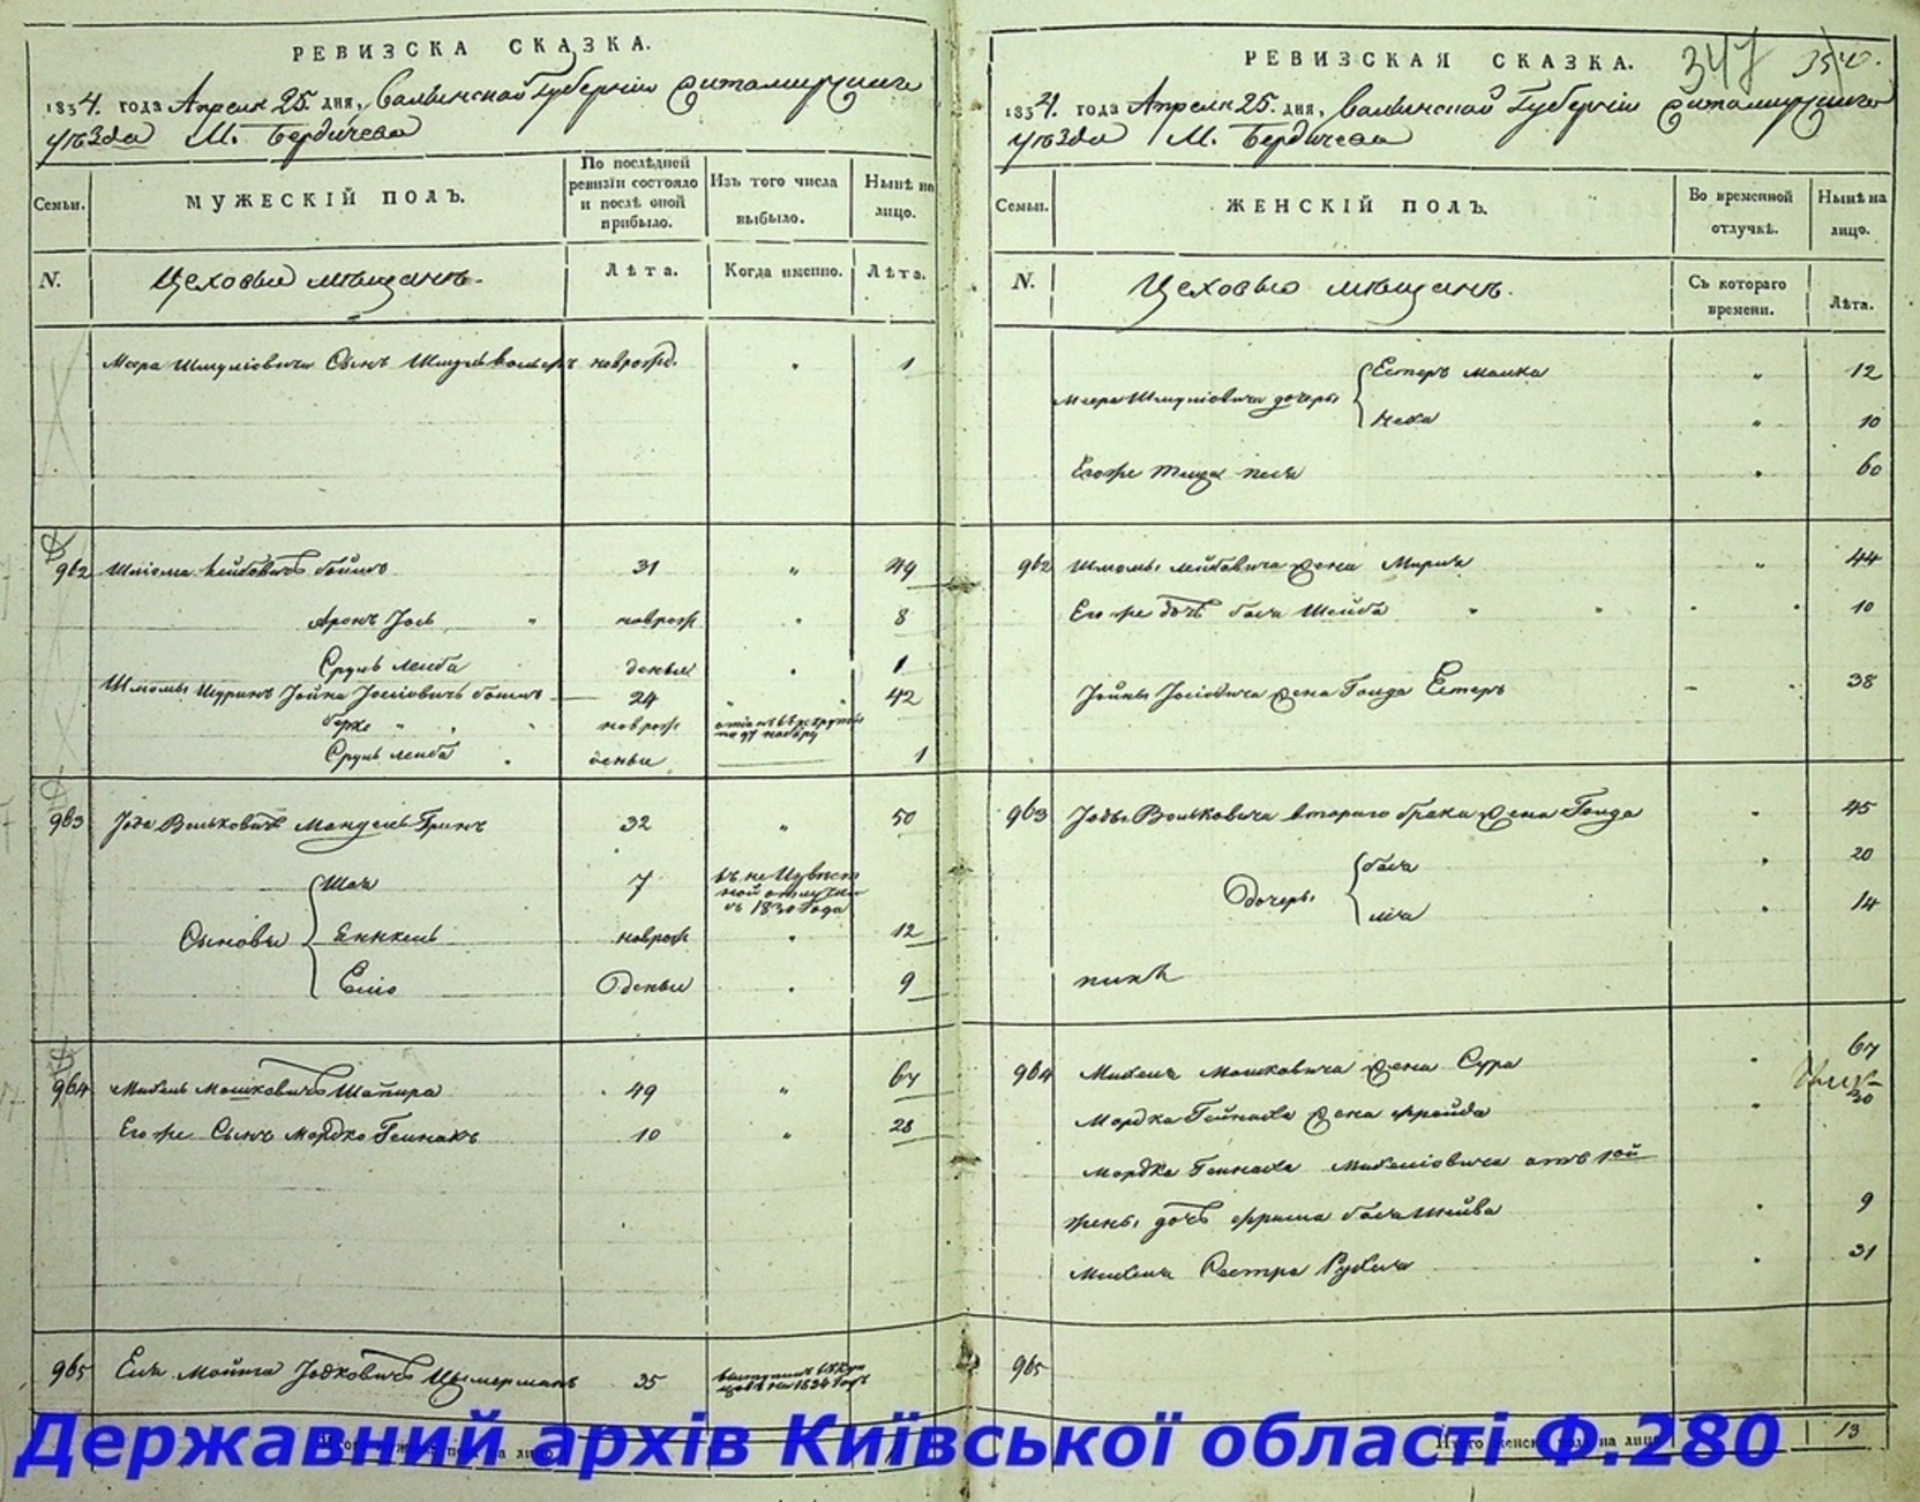 РЕВИЗСКА СКАЗКА.
1834. года Апреля 25. дня, Волынской Губернии Житомирскаго
уѣзда М. Бердичева
Семьи.
МУЖЕСКІЙ ПОЛЪ.
По послѣдней ревизіи состояло и послѣ оной прибыло.
Изъ того числа выбыло.
Нынѣ на лицо.
N.
Цеховые мѣщанъ.
Лѣта.
Когда именно.
Лѣта.
Меера Шмуліовича Сынъ новрожд. 1
962 Шліома Лейбовичъ 31 " 49
Аронъ Іось " новрож " 8
Сруль Лейба деные 1
Шломы Шуринъ Іойна Іосіовичъ 24 " 42
Берко " " новрож
Сруль Лейба деные 1
963 Іода Вольковичъ Мандель Гринъ 32 " 50
Шая 7 въ неизвѣст
ной отлучке
съ 1830 года
Сыновья Еннкель новрож 12
Еліо деные 9
964 Михель Мошковичъ Шапира 49 " 67
Его же Сынъ Мордко Геинахъ 10 " 28
965 Еля Мойша Іодковичъ Цымерманъ 35
на 1834 годъ
РЕВИЗСКАЯ СКАЗКА.
347
1834. года Апреля 25. дня, Волынской Губерніи Житомирскаго
уѣзда М. Бердичева
Семьи.
ЖЕНСКІЙ ПОЛЪ.
Во временной отлучкѣ.
Нынѣ на лицо.
N.
Цеховые мѣщанъ.
Съ котораго времени.
Лѣта.
Меера Шмуліовича дочеры
Естеръ Малка " 12
Неха " 10
Его же теща Песя " 60
962 Шломы Лейбовича жена Мирля " 44
Его же дочь Бася Шейва " " 10
Іойны Іосіовича жена Голда Естеръ 38
963 Іоды Вольковича втораго брака жена Голда " 45
Дочеры
Бася " 20
Лея " 14
964 Михеля Мошковича жена Сура " 67
Мордка Гейнаха жена Фрейда " 30
Мордка Геинаха Михеліовича отъ 1ой
жены дочь Фрима Бася Шейва " 9
Михеля Сестра Рухля " 31
965
Итого женска пола на лицо 13
Державний архів Київської області Ф.280